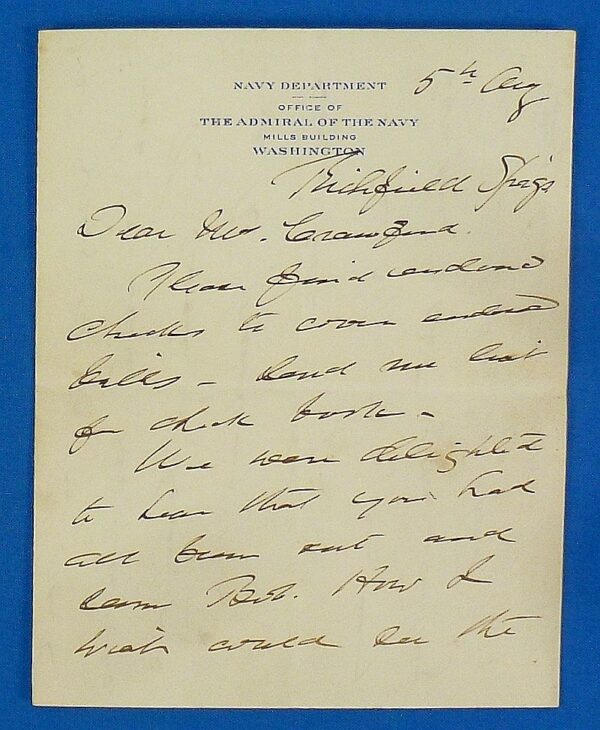 NAVY DEPARTMENT
OFFICE OF
THE ADMIRAL OF THE NAVY
MILLS BUILDING
WASHINGTON
5th Aug
Richfield Sp'gs
Dear Mr. Crawford.
Please find enclosed
checks to cover enclosed
bills – Send me list
for check book –
We were delighted
to hear that you had
all been out and
seen Bob. How I
wish could see the